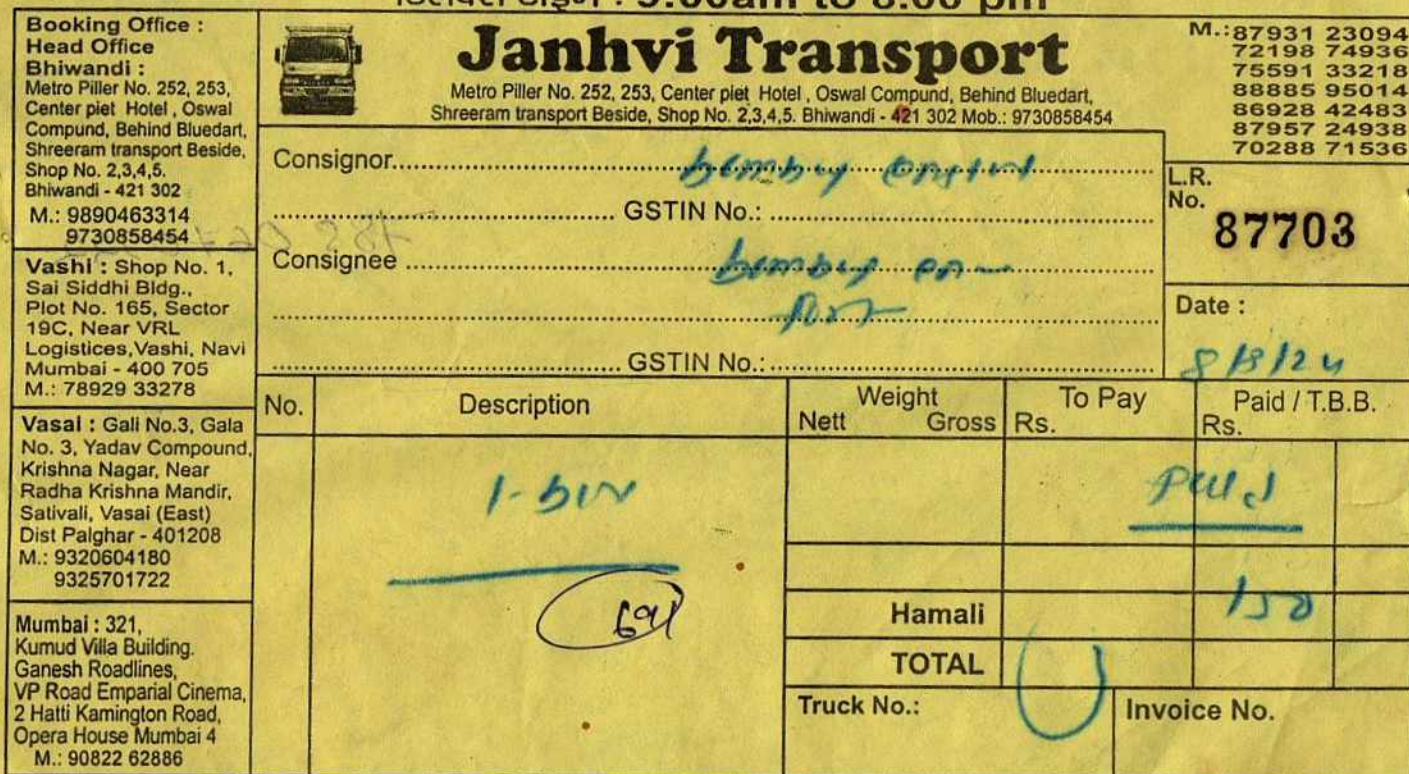 9:00am to 8:00 pm
Booking Office :
Head Office
Bhiwandi :
Metro Piller No. 252, 253,
Center piet Hotel , Oswal
Compund, Behind Bluedart,
Shreeram transport Beside,
Shop No. 2,3,4,5.
Bhiwandi - 421 302
M.: 9890463314
9730858454
Vashi : Shop No. 1,
Sai Siddhi Bldg.,
Plot No. 165, Sector
19C, Near VRL
Logistices,Vashi, Navi
Mumbai - 400 705
M.: 78929 33278
Vasai : Gali No.3, Gala
No. 3, Yadav Compound,
Krishna Nagar, Near
Radha Krishna Mandir,
Sativali, Vasai (East)
Dist Palghar - 401208
M.: 9320604180
9325701722
Mumbai : 321,
Kumud Villa Building.
Ganesh Roadlines,
VP Road Emparial Cinema,
2 Hatti Kamington Road,
Opera House Mumbai 4
M.: 90822 62886
Janhvi Transport
Metro Piller No. 252, 253, Center piet Hotel , Oswal Compund, Behind Bluedart,
Shreeram transport Beside, Shop No. 2,3,4,5. Bhiwandi - 421 302 Mob.: 9730858454
M.:87931 23094
72198 74936
75591 33218
88885 95014
86928 42483
87957 24938
70288 71536
Consignor bombay
GSTIN No.:
Consignee bombay
GSTIN No.:
L.R.
No.
87703
Date :
8/8/24
No. Description Weight To Pay Paid / T.B.B.
Nett Gross Rs. Rs.
Paid
Hamali 150
TOTAL
Truck No.: Invoice No.